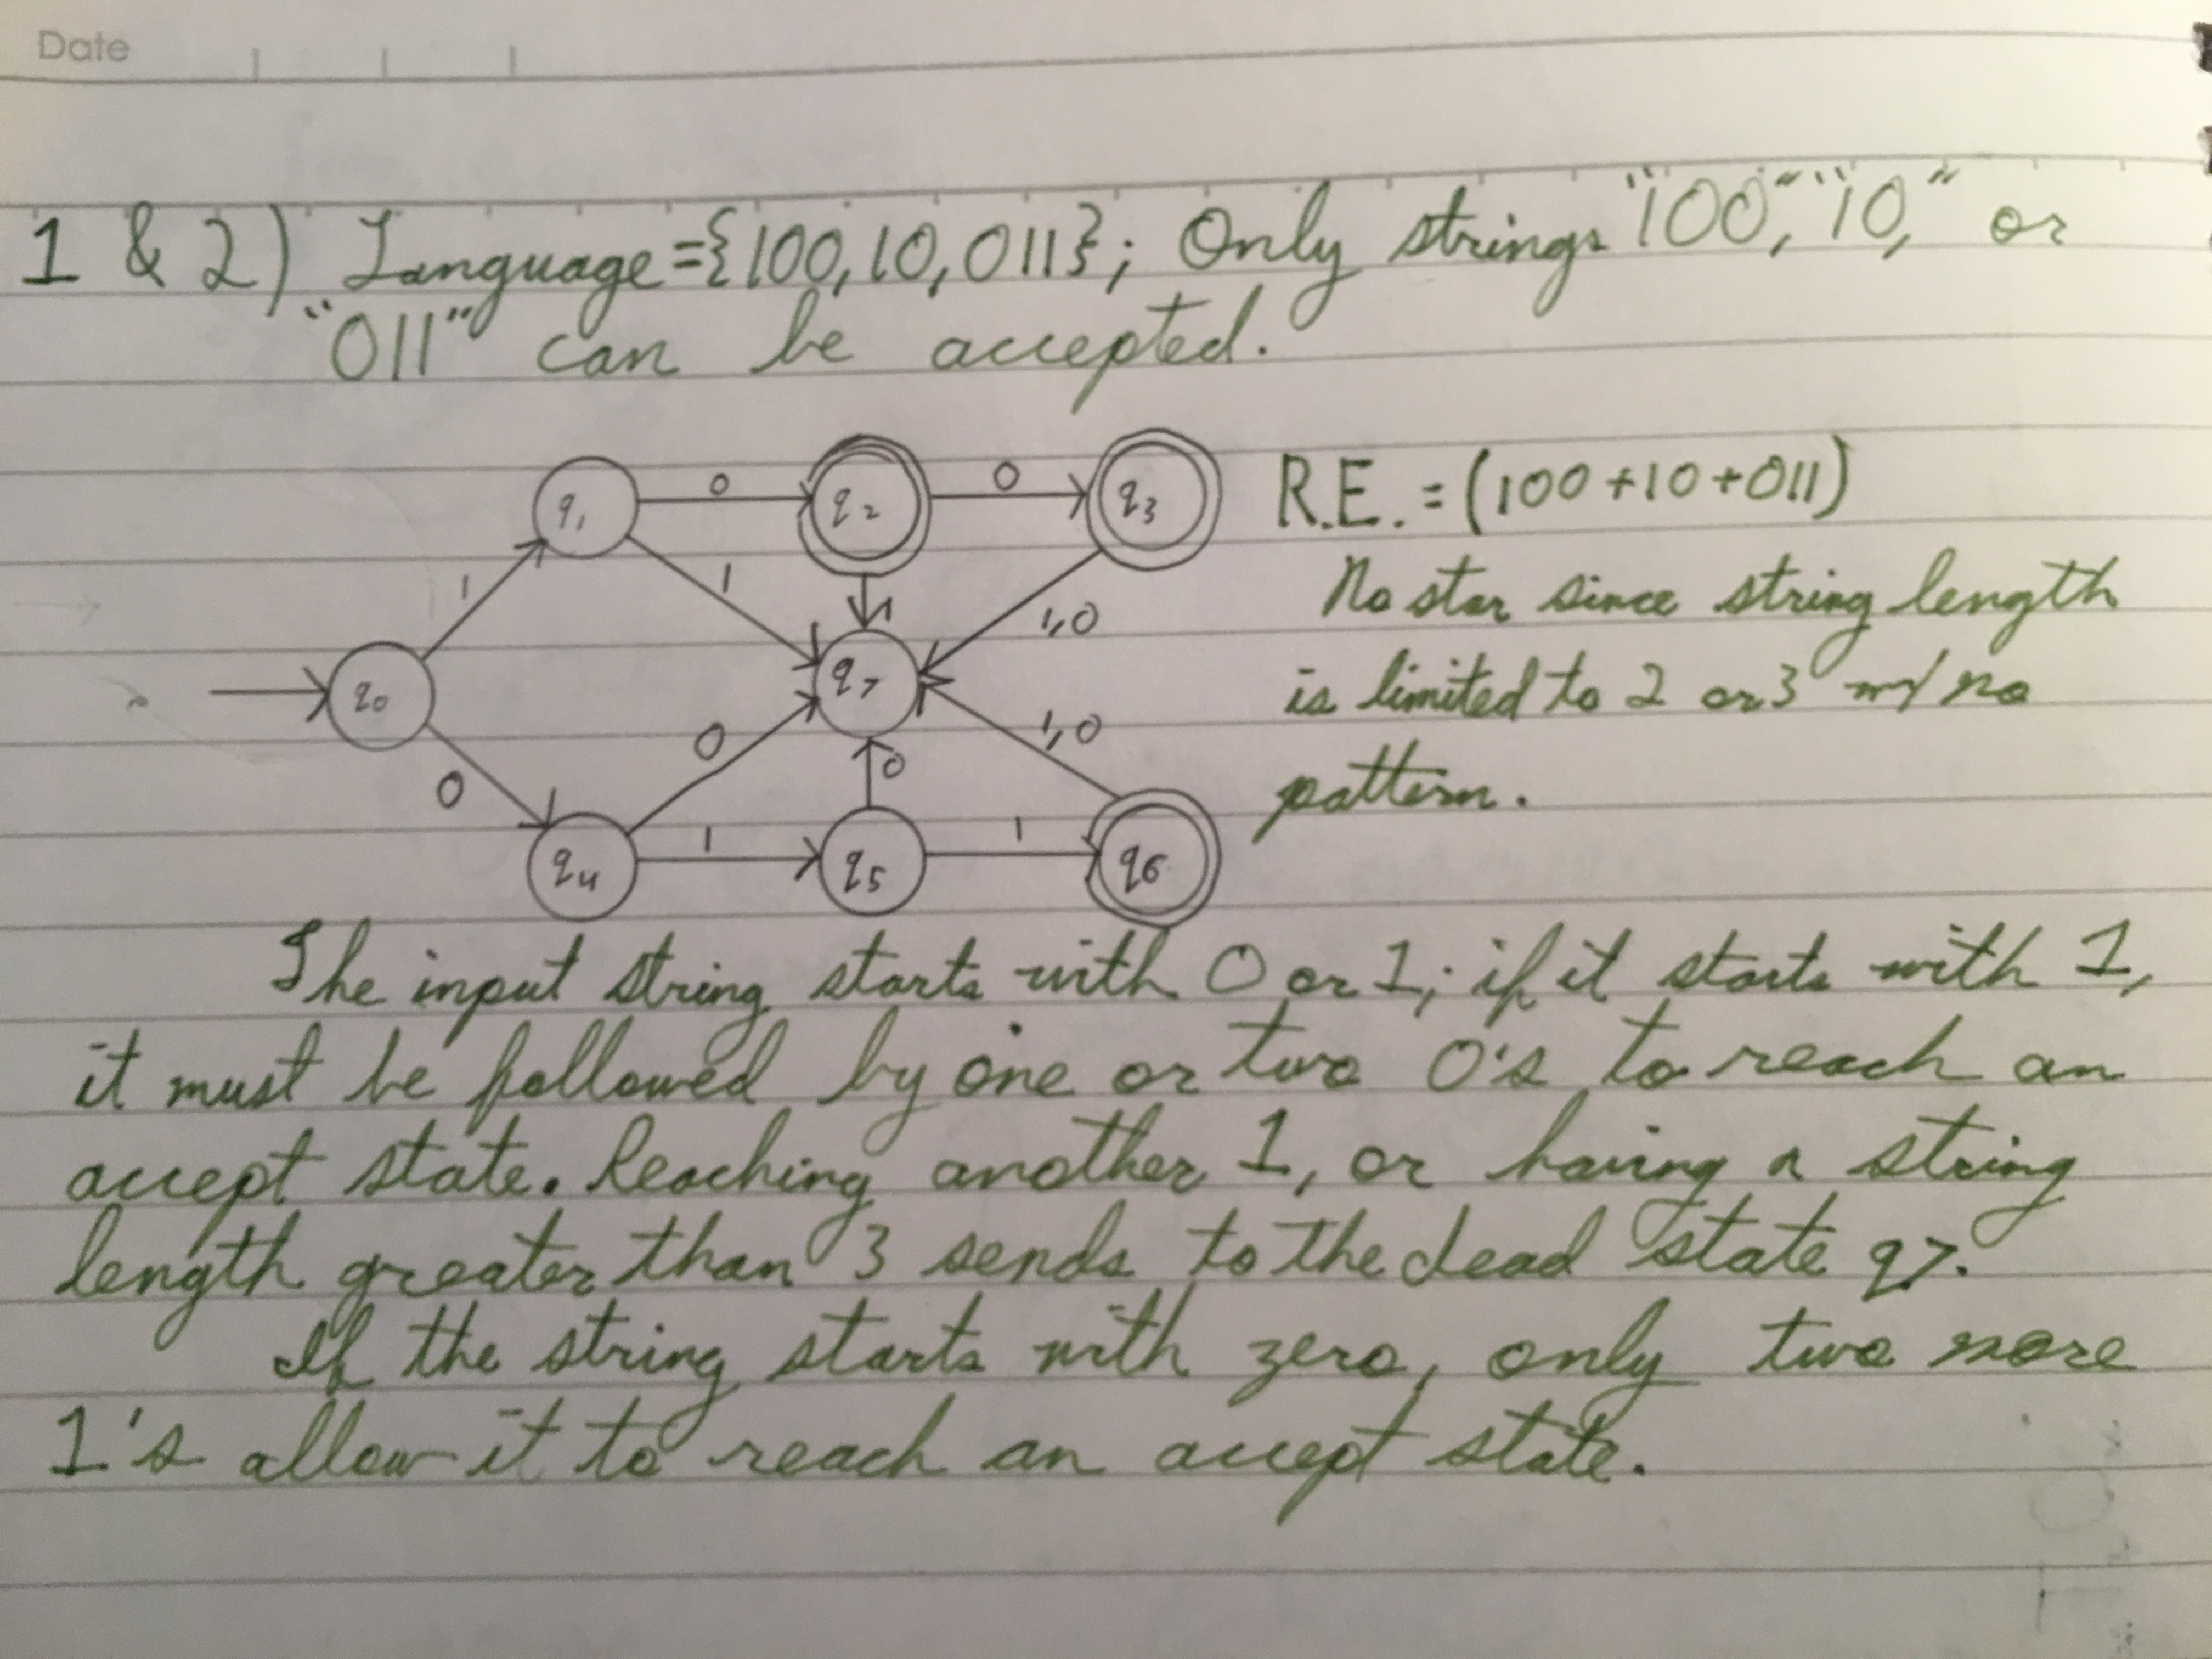 Date
1 & 2) Language = {100, 10, 011}; Only strings "100", "10," or
"011" can be accepted.
R.E. = (100 + 10 + 011)
No star since string length
is limited to 2 or 3 w/ no
pattern.
q0
1
0
q1
0
1
q2
0
1
q3
1,0
q7
q4
0
1
q5
0
1
q6
1,0
The input string starts with 0 or 1; if it starts with 1,
it must be followed by one or two 0's to reach an
accept state. Reaching another 1, or having a string
length greater than 3 sends to the dead state q7.
If the string starts with zero, only two more
1's allow it to reach an accept state.